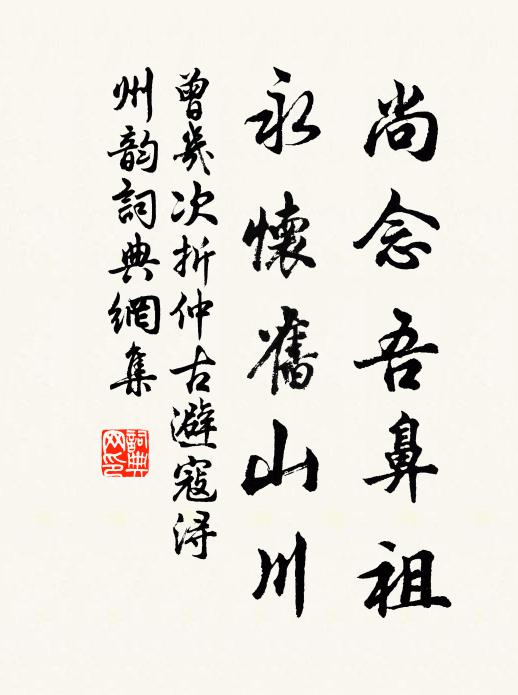 尚念吾鼻祖
永懷舊山川
曾幾次折仲古避寇浔
州韵詞典網集
詞典
网印